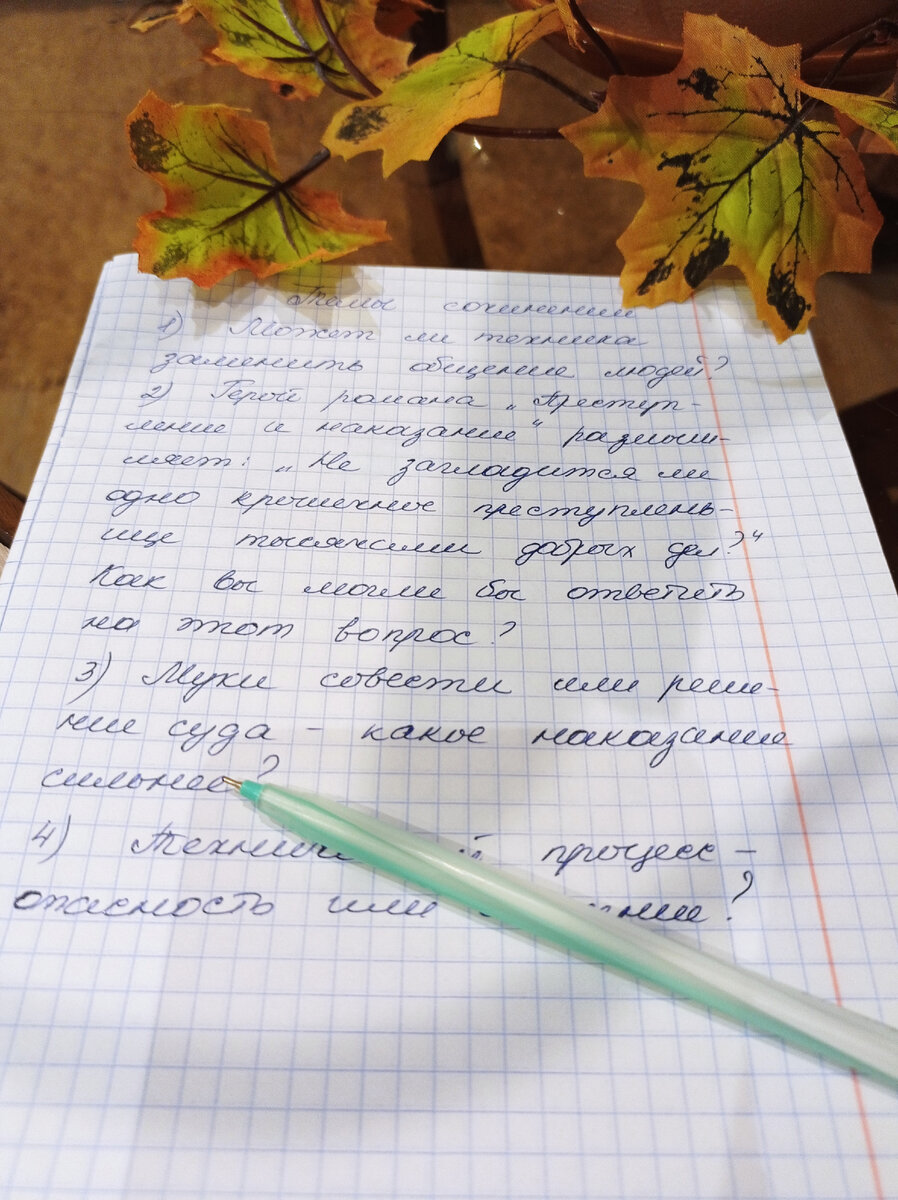 Темы сочинений
1) Может ли техника
заменить общение людей?
2) Герой романа „Преступ-
ление и наказание“ размыш-
ляет: „Не загладится ли
одно крошечное преступлень-
ице тысячами добрых дел?“
Как вы могли бы ответить
на этот вопрос?
3) Муки совести или реше-
ние суда – какое наказание
сильнее?
4) процесс –
опасность или